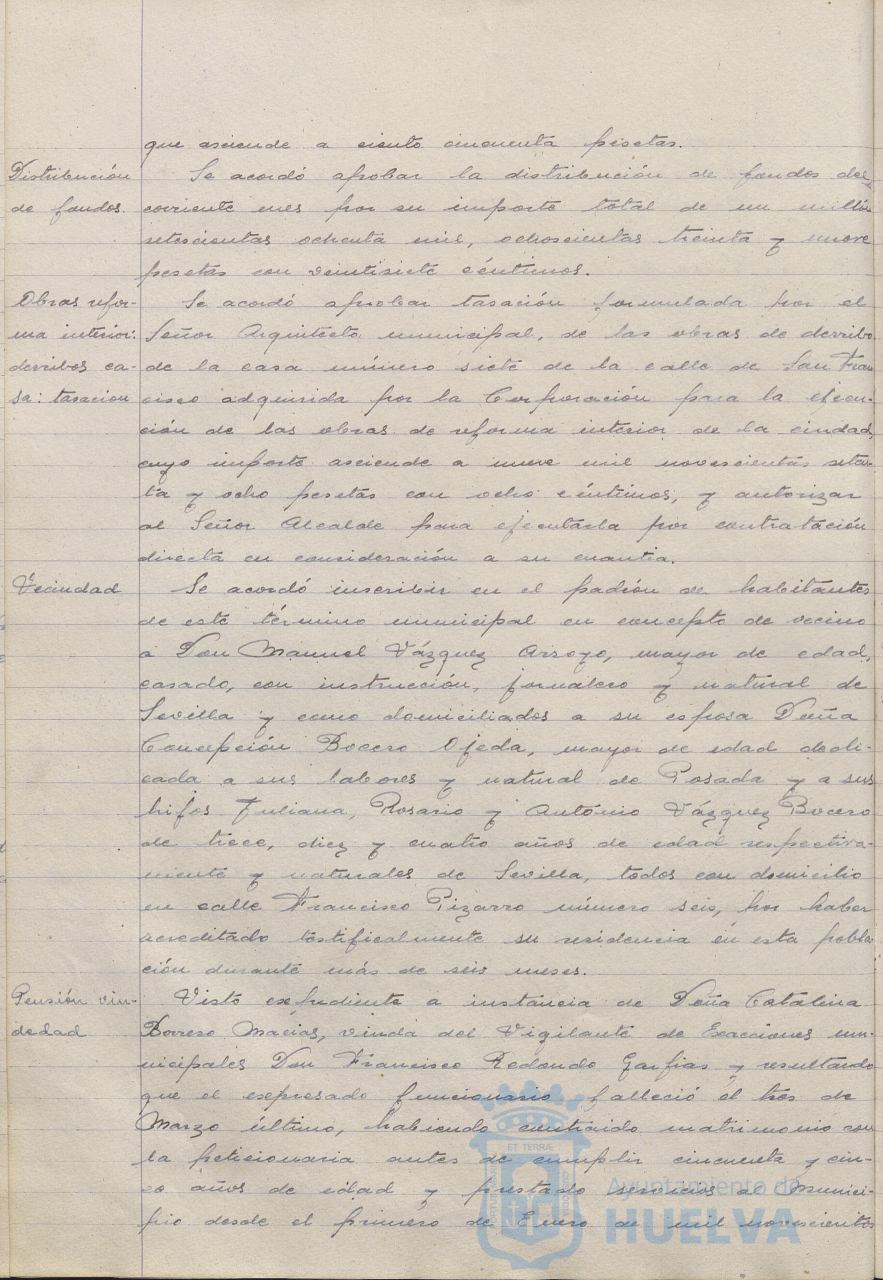 que asciende a ciento cincuenta pesetas.
Distribución Se acordó aprobar la distribución de fondos del
de fondos. corriente mes por su importe total de un millón
setecientas ochenta mil, ochocientas treinta y nueve
pesetas con veintisiete céntimos.
Obras refor- Se acordó aprobar tasación formulada por el
ma interior: Señor Arquitecto municipal, de las obras de derribo
derribos ca- de la casa número siete de la calle de San Fran
sa: tasacion cisco adquirida por la Corporación para la ejecu-
ción de las obras de reforma interior de la ciudad,
cuyo importe asciende a nueve mil novecientas seten-
ta y ocho pesetas con ocho céntimos, y autorizar
al Señor Alcalde para ejecutarla por contratación
directa en consideración a su cuantia.
Vecindad Se acordó inscribir en el padrón de habitantes
de este término municipal en concepto de vecino
a Don Manuel Vázquez Arroyo, mayor de edad,
casado, con instrucción, jornalero y natural de
Sevilla y como domiciliados a su esposa Doña
Concepción Bocero Ojeda, mayor de edad dedi-
cada a sus labores y natural de Posada y a sus
hijos Juliana, Rosario y António Vázquez Bocero
de trece, diez y cuatro años de edad respectiva-
mente y naturales de Sevilla, todos con domicilio
en calle Francisco Pizarro número seis, por haber
acreditado testificalmente su residencia en esta pobla
ción durante más de seis meses.
Pensión viu- Visto expediente a instancia de Doña Catalina
dedad Borrero Macias, viuda del Vigilante de Exacciones mu-
nicipales Don Francisco Redondo Garfias y resultando
que el expresado funcionario falleció el tres de
Marzo último, habiendo contraido matrimonio con
la peticionaria antes de cumplir cincuenta y cin-
co años de edad y prestado servicios al Munici-
pio desde el primero de Enero de mil novecientos
ET TERRÆ
Ayuntamiento de
HUELVA